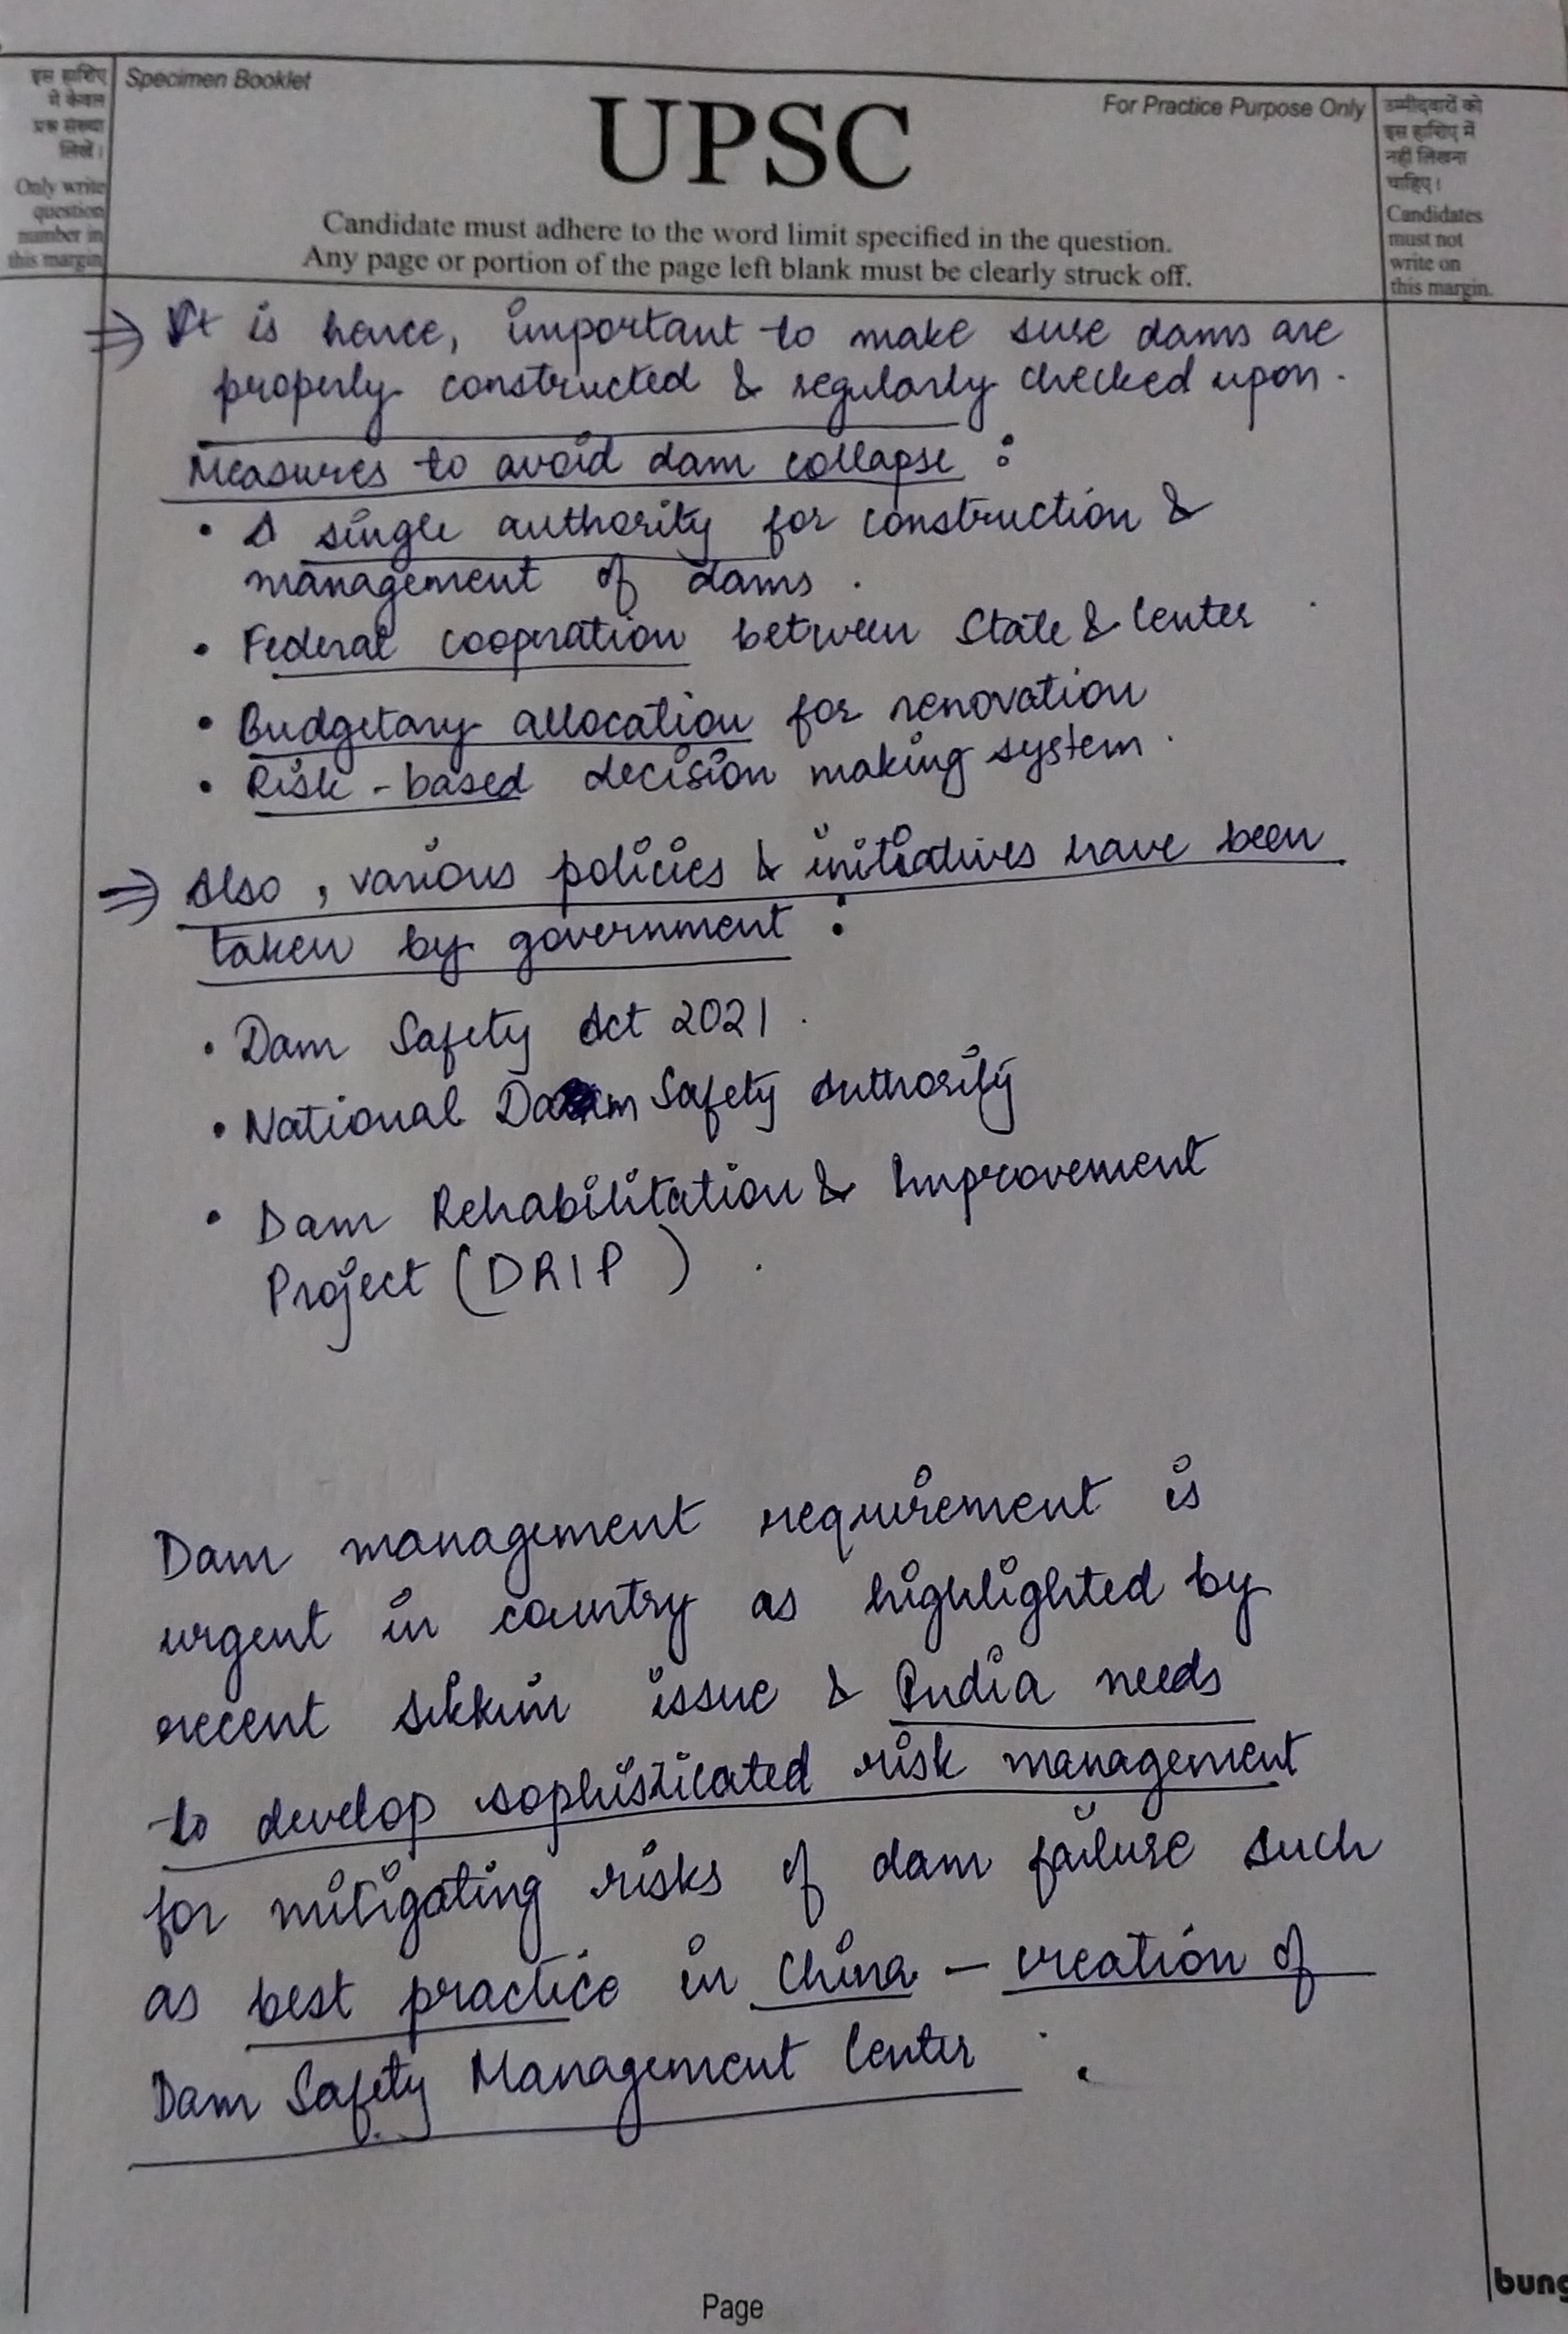 इस हाशिए
में केवल
प्रश्न संख्या
लिखें।
Only write
question
number in
this margin
Specimen Booklet
UPSC
For Practice Purpose Only
Candidate must adhere to the word limit specified in the question.
Any page or portion of the page left blank must be clearly struck off.
उम्मीदवारों को
इस हाशिए में
नहीं लिखना
चाहिए।
Candidates
must not
write on
this margin.
⇒ It is hence, important to make sure dams are
properly constructed & regularly checked upon.
Measures to avoid dam collapse :
• A single authority for construction &
management of dams.
• Federal cooperation between State & Center
• Budgetary allocation for renovation
• Risk-based decision making system.
⇒ Also, various policies & initiatives have been
taken by government :
• Dam Safety Act 2021.
• National Dam Safety Authority
• Dam Rehabilitation & Improvement
Project (DRIP).
Dam management requirement is
urgent in country as highlighted by
recent Sikkim issue & India needs
to develop sophisticated risk management
for mitigating risks of dam failure such
as best practice in China – creation of
Dam Safety Management Center.
Page
bung